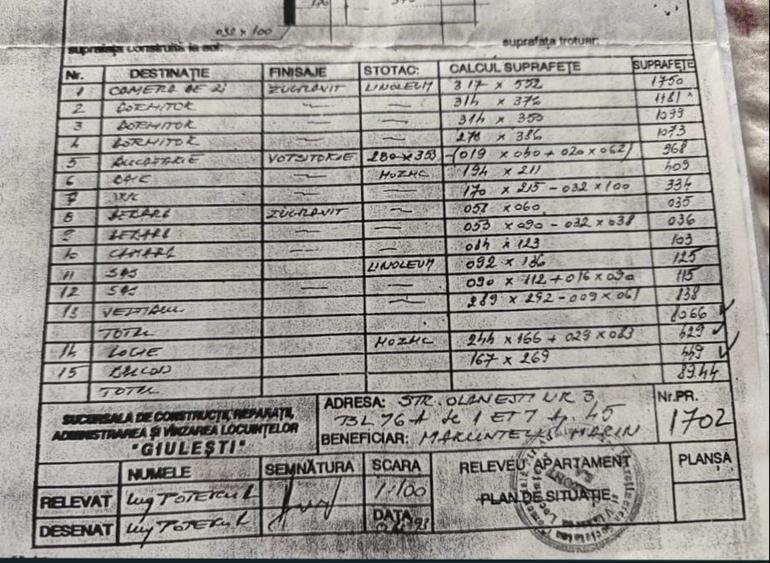 032 x 100
suprafața construită la sol: suprafața trotuar:
Nr. DESTINAȚIE FINISAJE STOTAC: CALCUL SUPRAFEȚE SUPRAFEȚE
1 CAMERA DE ZI ZUGRAVIT LINOLEUM 317 x 552 1750
2 DORMITOR 314 x 376 1181
3 DORMITOR 314 x 350 1099
4 DORMITOR 278 x 386 1073
5 BUCATARIE 280 x 353 - (019 x 060 + 020 x 062) 968
6 BAIE MOZAIC 194 x 211 409
7 170 x 215 - 032 x 100 334
8 DEBARA ZUGRAVIT 058 x 060 035
9 DEBARA 053 x 090 - 032 x 038 036
10 CAMARA 084 x 123 103
11 SAS LINOLEUM 092 x 136 125
12 SAS 090 x 112 + 016 x 090 115
13 289 x 292 - 009 x 061 838
TOTAL 8066
14 LOGIE MOZAIC 244 x 166 + 029 x 083 429
15 BALCON 167 x 269 449
TOTAL 8944
SUCURSALA DE CONSTRUCȚII, REPARAȚII,
ADMINISTRAREA ȘI VÎNZAREA LOCUINȚELOR
"GIULEȘTI"
ADRESA: STR. OLANESTI NR 3
BL 76 A Sc 1 ET 7 Ap. 45
BENEFICIAR: MARIN
Nr.PR.
1702
NUMELE SEMNĂTURA SCARA RELEVEU APARTAMENT PLANȘA
RELEVAT 1:100
PLAN DE SITUAȚIE
DESENAT DATA